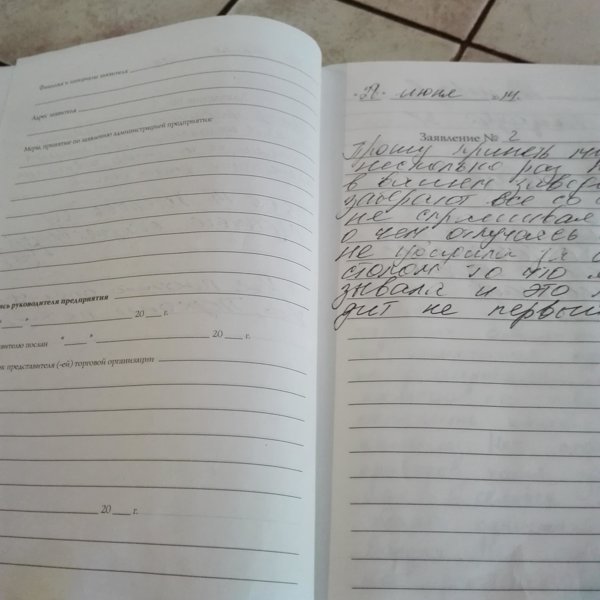 Фамилия и инициалы заявителя
Адрес заявителя
Меры, принятые по заявлению администрацией предприятия:
ись руководителя предприятия
"___" 20___ г.
вителю послан "___" 20___ г.
ок представителя (-ей) торговой организации
20___ г.
июня 14.
Заявление № 2
Прошу принять
несколько раз
в вашем
забирают все со
не спрашивая
о чем
не
столом то что
зывала и это
дит не первый